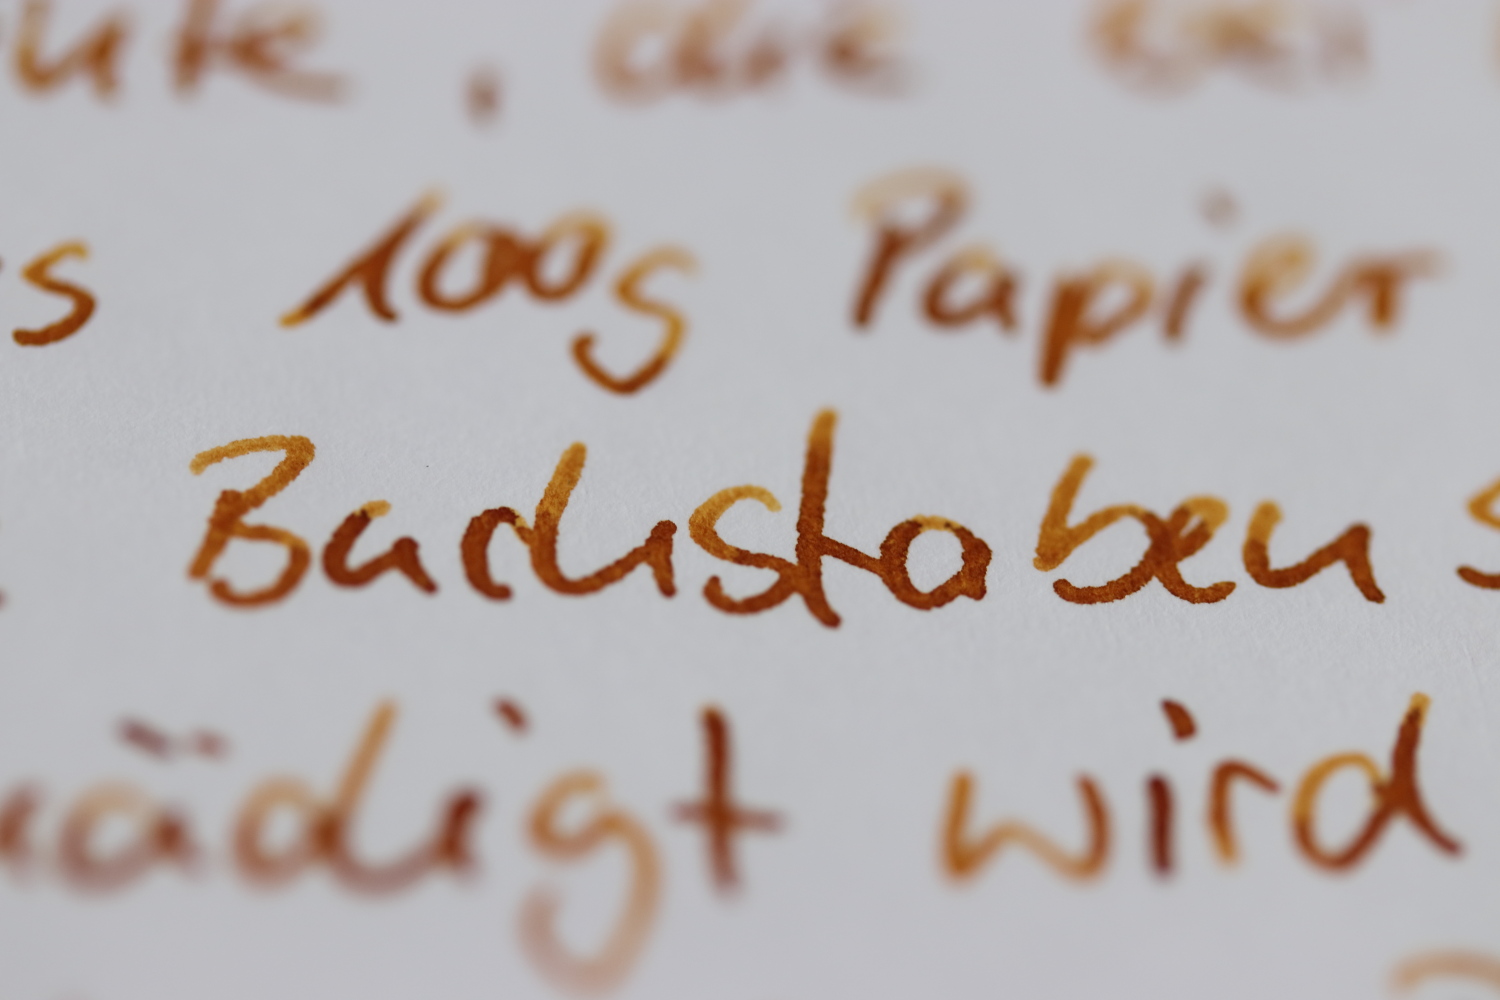 , die
s 100g Papier
Buchstaben s
ädigt wird